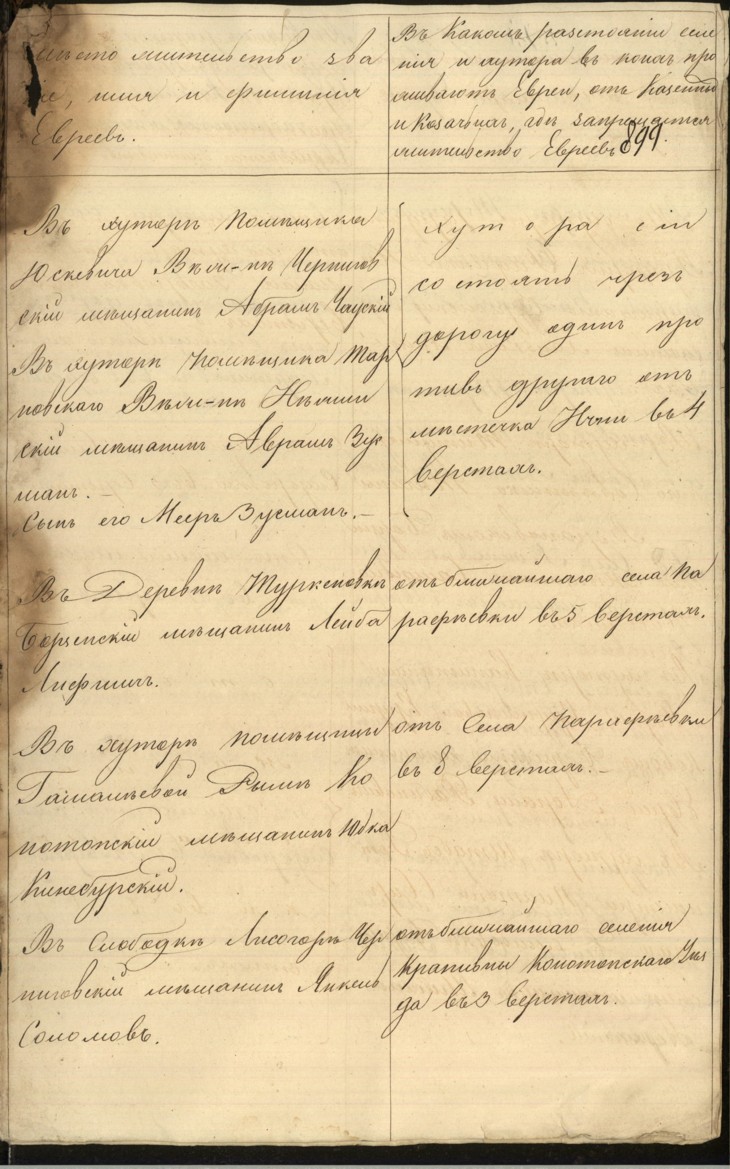 Мѣсто жительство зва
ніе, имя и фимилія
Евреевъ.
Въ Какомъ разстояніи селе
нія и хутора въ коихъ про
живаютъ Евреи, отъ Казенныхъ
и Козачьихъ, гдѣ запрещается
жительство Евреевъ
899.
Въ хуторѣ помѣщика
Юскевича Вѣли-къ Чернигов
скій мѣщанинъ Абрамъ Чаускій
Въ хуторѣ помѣщика Тар
новскаго Вѣли-къ Нѣжин
скій мѣщанинъ Аврамъ Зус
манъ.
Сынъ его Мееръ Зусманъ.
хутора сіи
состоятъ чрезъ
дорогу одинъ про
тивъ другаго отъ
мѣстечка Ични въ 4
верстахъ.
Въ Деревнѣ Туркеновкѣ
Борзенскій мѣщанинъ Лейба
Лифшиъ.
отъ ближайшаго села Па
рафѣевки въ 5 верстахъ.
Въ хуторѣ помѣщицы
Гамалѣевой Рымѣ Ко
нотопскій мѣщанинъ Юдка
Кинебурскій.
отъ Села Парафѣевки
въ 8 верстахъ.
Въ Слободкѣ Лисогорѣ Чер
ниговскій мѣщанинъ Янкель
Соломовъ.
отъ ближайшаго селенія
Крапивны Конотопскаго Уѣз
да въ 3 верстахъ.